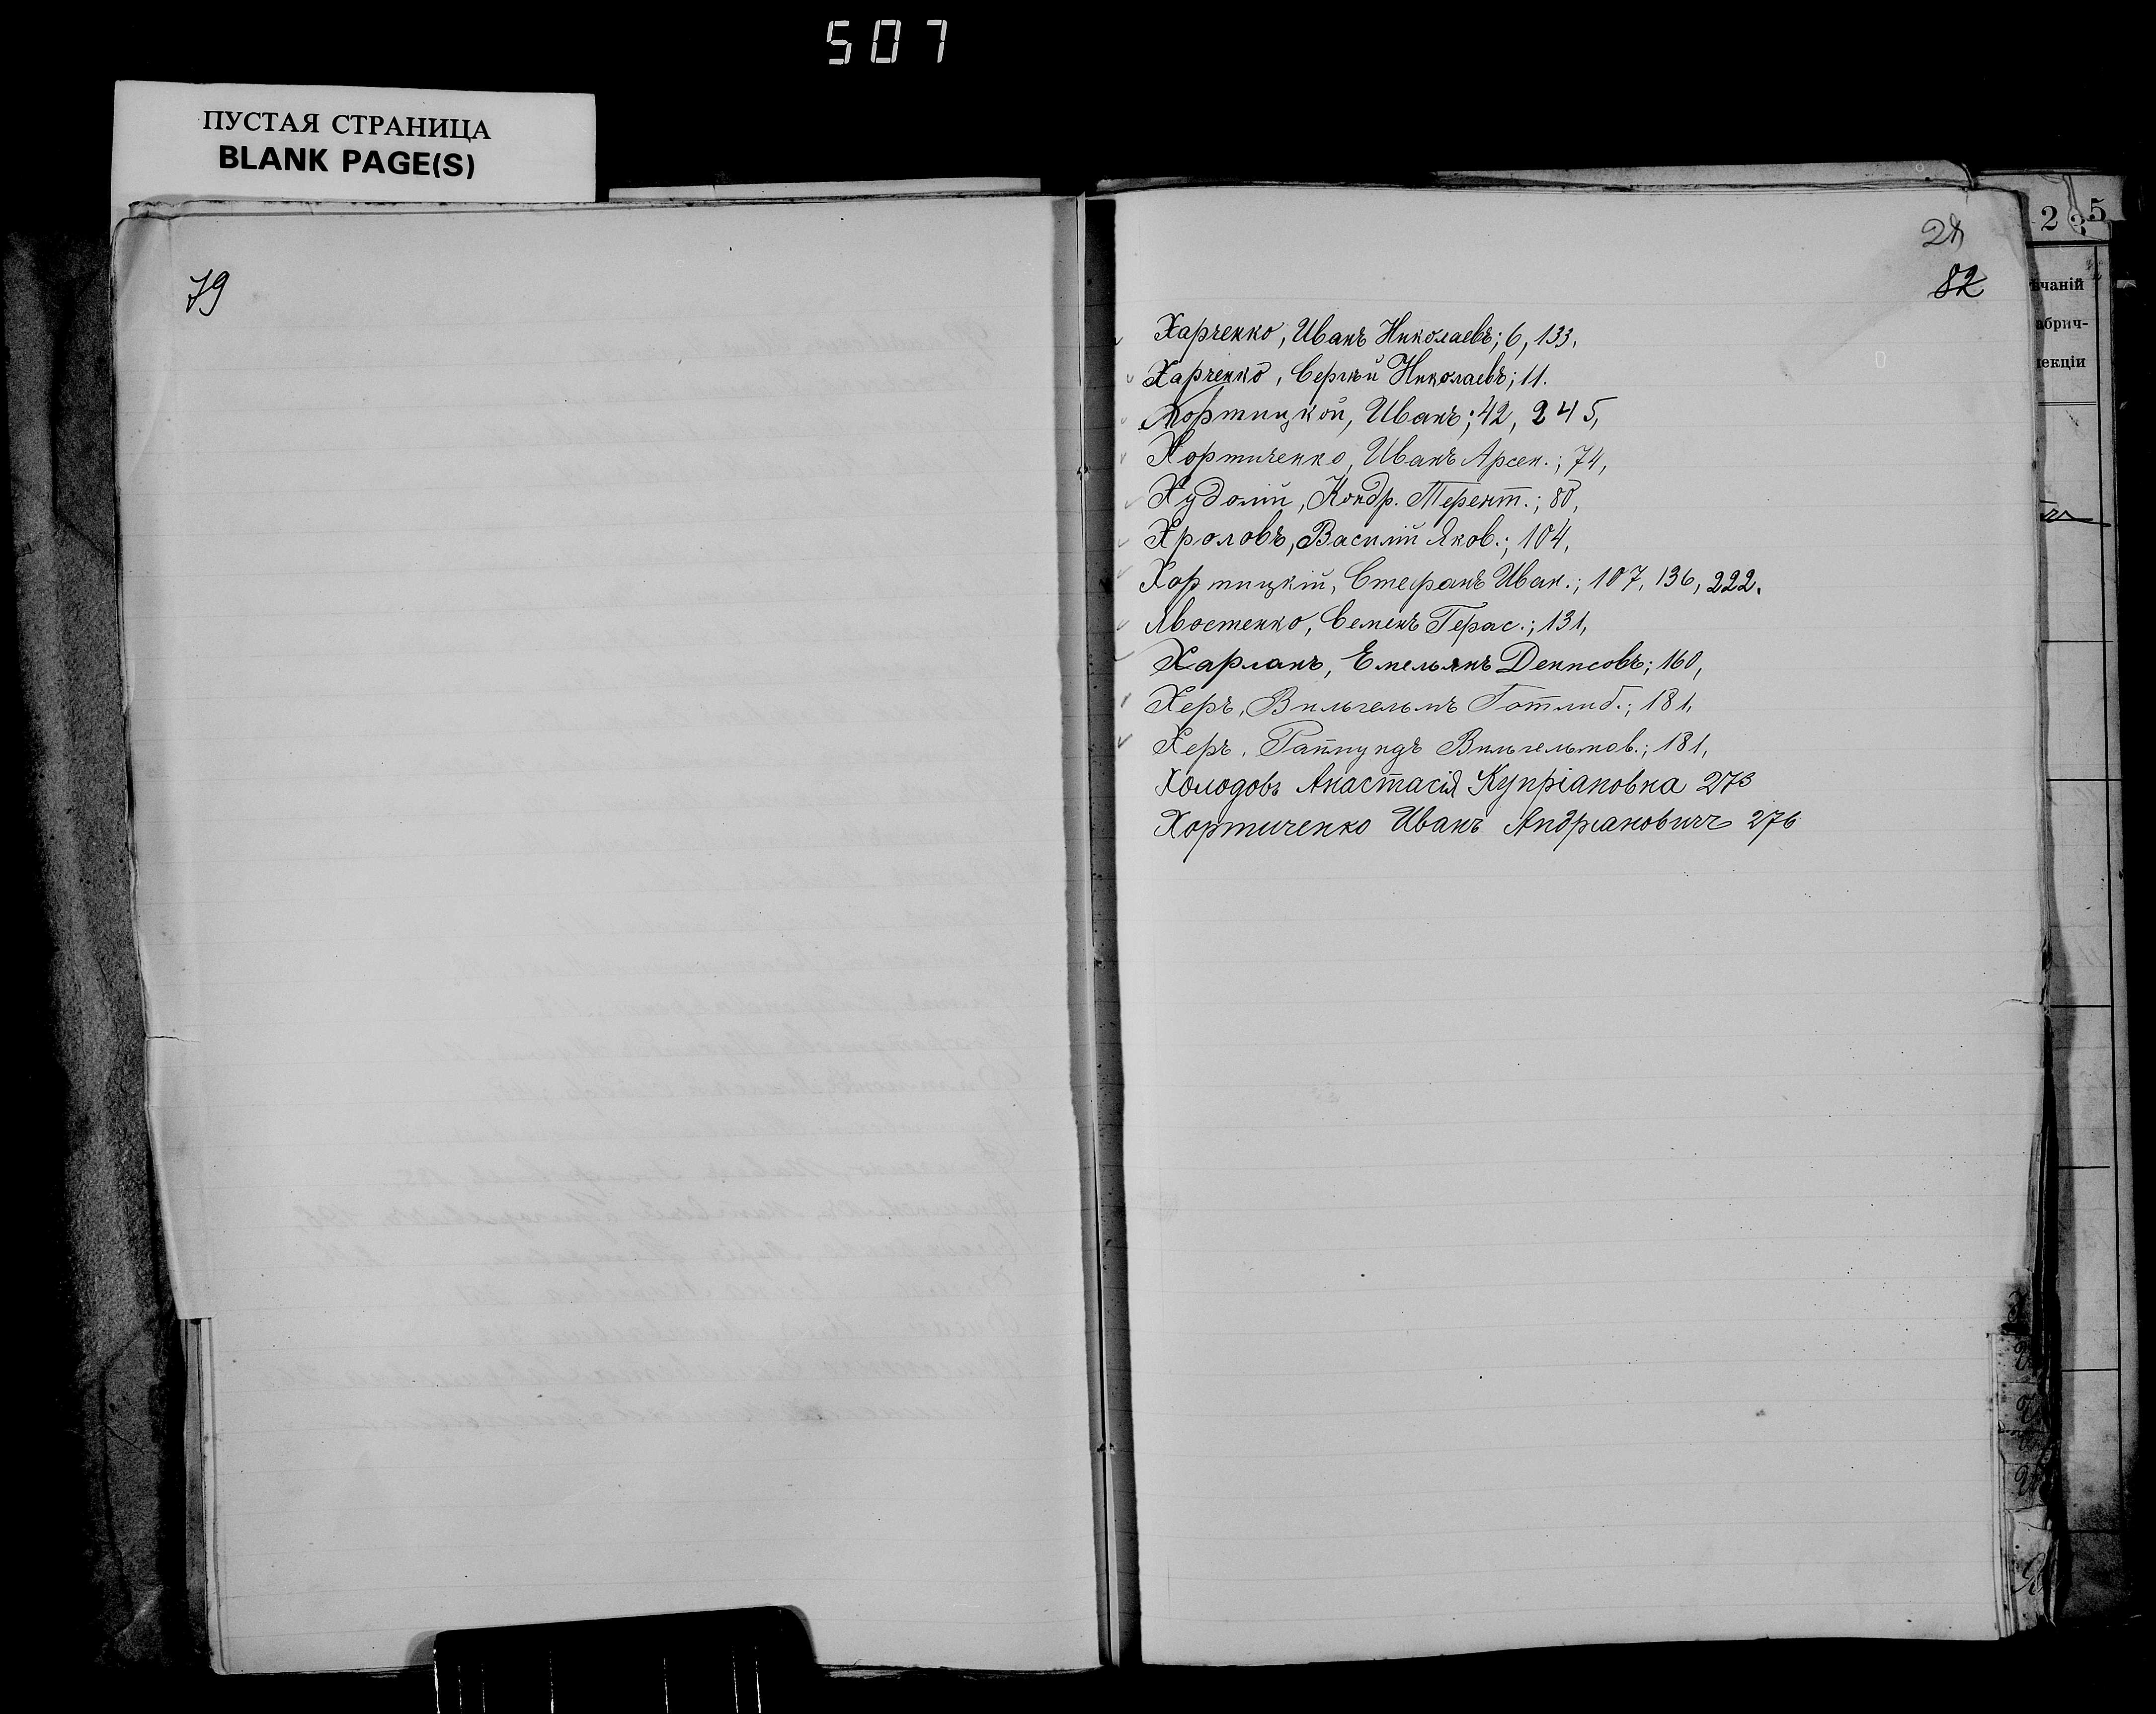 507
ПУСТАЯ СТРАНИЦА
BLANK PAGE(S)
79
28
82
Харченко, Иванъ Николаевъ; 6, 133,
Харченко, Сергѣй Николаевъ; 11.
Хортицкой, Иванъ; 42, 245,
Хортиченко, Иванъ Арсен.; 74,
Худолій, Кондр. Терент.; 80,
Хроловъ, Василій Яков.; 104,
Хортицкій, Стефанъ Иван.; 107, 136, 222.
Хвостенко, Семенъ Герас.; 131,
Харланъ, Емельянъ Денисовъ; 160,
Херъ, Вильгельмъ Готлиб.; 181,
Херъ, Вильгельмов.; 181,
Холодовъ Анастасія Купріановна 273
Хортиченко Иванъ Андріановичъ 276
2 3 5
ѣчаній
абрич-
пекціи